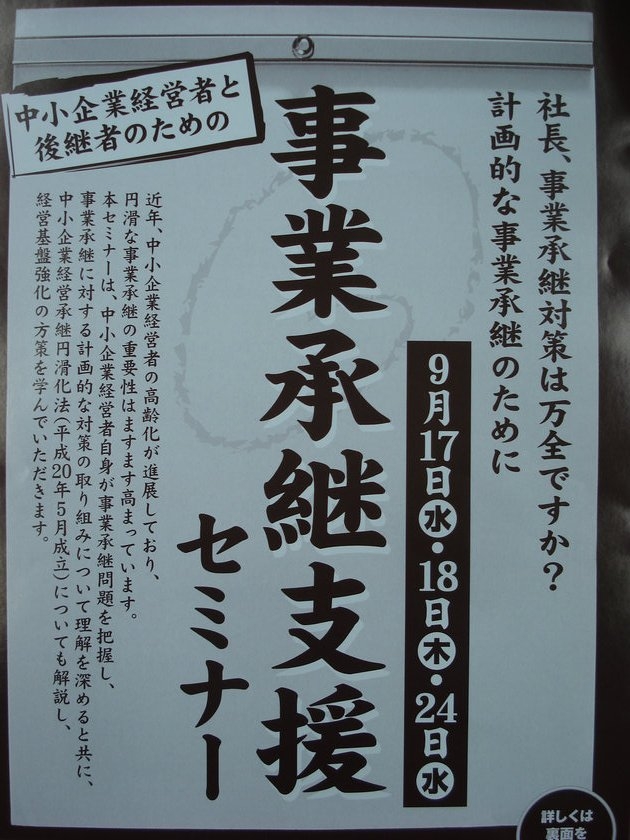 社長、事業承継対策は万全ですか？
計画的な事業承継のために
9月17日㊌・18日㊍・24日㊌
中小企業経営者と
後継者のための
事業承継支援
セミナー
近年、中小企業経営者の高齢化が進展しており、
円滑な事業承継の重要性はますます高まっています。
本セミナーは、中小企業経営者自身が事業承継問題を把握し、
事業承継に対する計画的な対策の取り組みについて理解を深めると共に、
中小企業経営承継円滑化法（平成20年5月成立）についても解説し、
経営基盤強化の方策を学んでいただきます。
詳しくは
裏面を